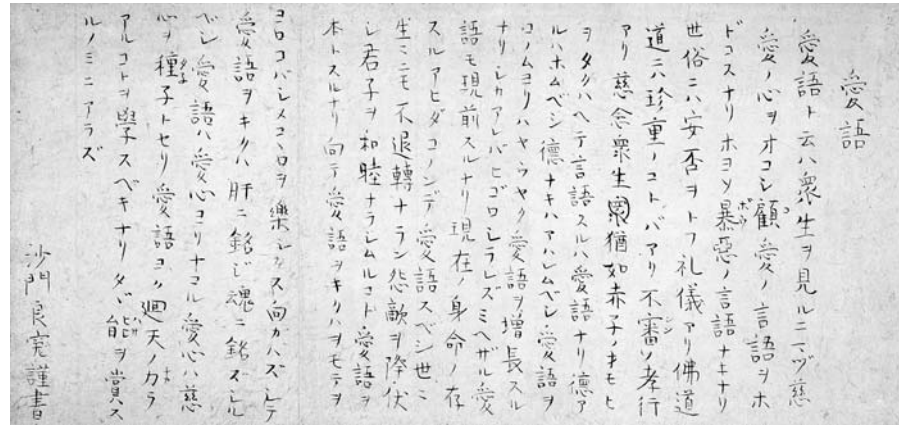 愛語
愛語ト云ハ衆生ヲ見ルニマヅ慈
愛ノ心ヲオコシ顧愛ノ言語ヲホ
ドコスナリホヨソ暴惡ノ言語ナキナリ
世俗ニハ安否ヲトフ礼儀アリ佛道
道ニハ珍重ノコトバアリ不審ノ孝行
アリ慈念衆生猶如赤子ノオモヒ
ヲタクハヘテ言語スルハ愛語ナリ德ア
ルハホムベシ德ナキハアハレムベシ愛語ヲ
コノムヨリハヤウヤク愛語ヲ增長スル
ナリシカアレバヒゴロシラレズミヘザル愛
語モ現前スルナリ現在ノ身命ノ存
スルアヒダコノンデ愛語スベシ世々
生々ニモ不退轉ナラン怨敵ヲ降伏
シ君子ヲ和睦ナラシムルコト愛語ヲ
本トスルナリ向テ愛語ヲキクハヲモテヲ
ヨロコバシメココロヲ樂シクス向カハズシテ
愛語ヲキクハ肝ニ銘ジ魂ニ銘ズシル
ベシ愛語ハ愛心ヨリオコル愛心ハ慈
心ヲ種子トセリ愛語ヨク廻天ノカラ
アルコトヲ學スベキナリタヾ能ヲ賞ス
ルノミニアラズ
沙門良寛謹書